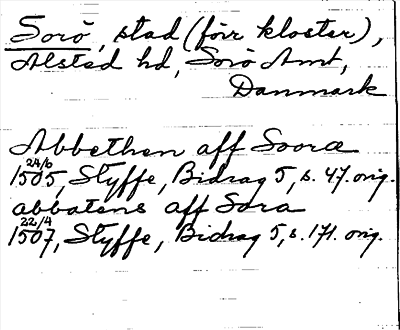 Sorö, stad (förr kloster),
Alsted hd, Sorö Amt,
Danmark
Abbethen aff Soora
24/6
1505, Styffe, Bidrag 5, s. 47. orig.
abbatens aff Sora
22/4
1507, Styffe, Bidrag 5, s. 171. orig.